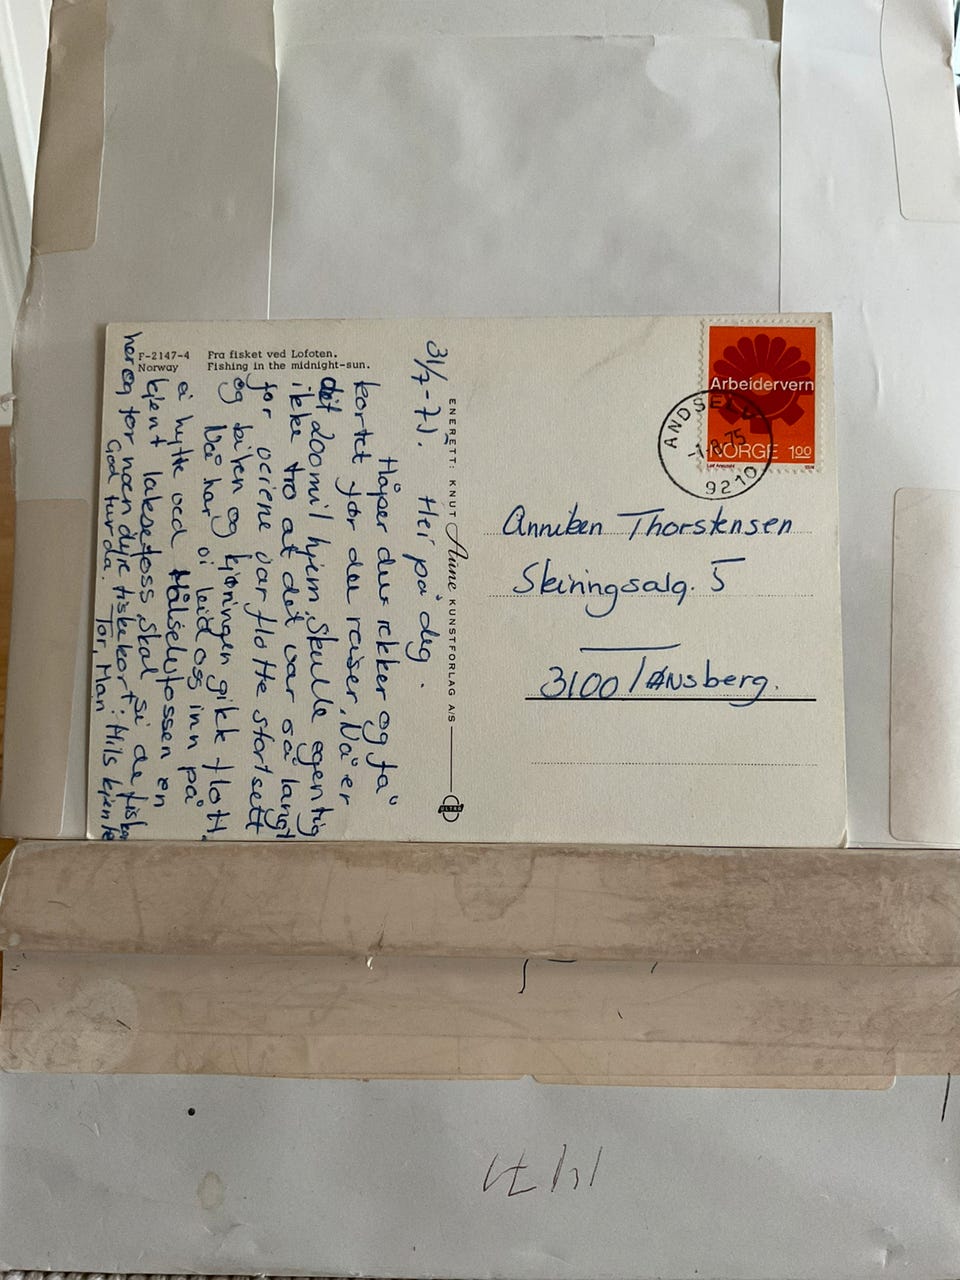 F-2147-4 Fra fisket ved Lofoten.
Norway Fishing in the midnight-sun.
31/7-75. Hei på deg.
Håper du rekker og få
kortet før du reiser. Nå er
det 200 mil hjem. Skulle egentlig
ikke tro at det var så langt
for veiene var flotte stort sett
og bilen og kjøringen gikk flott.
Nå har vi leid oss inn på
ei hytte ved Målselvfossen en
kjent laksefoss, skal si de fisker
her og for noen dyre fiskekort! Hils kjente
God tur da. Tor, Mari
ENERETT: KNUT Aune KUNSTFORLAG A/S
ULTRA
Arbeidervern
NORGE 100
ANDSELV
-1-8-75
9210
Anniken Thorstensen
Skiringsalg. 5
3100 Tønsberg.